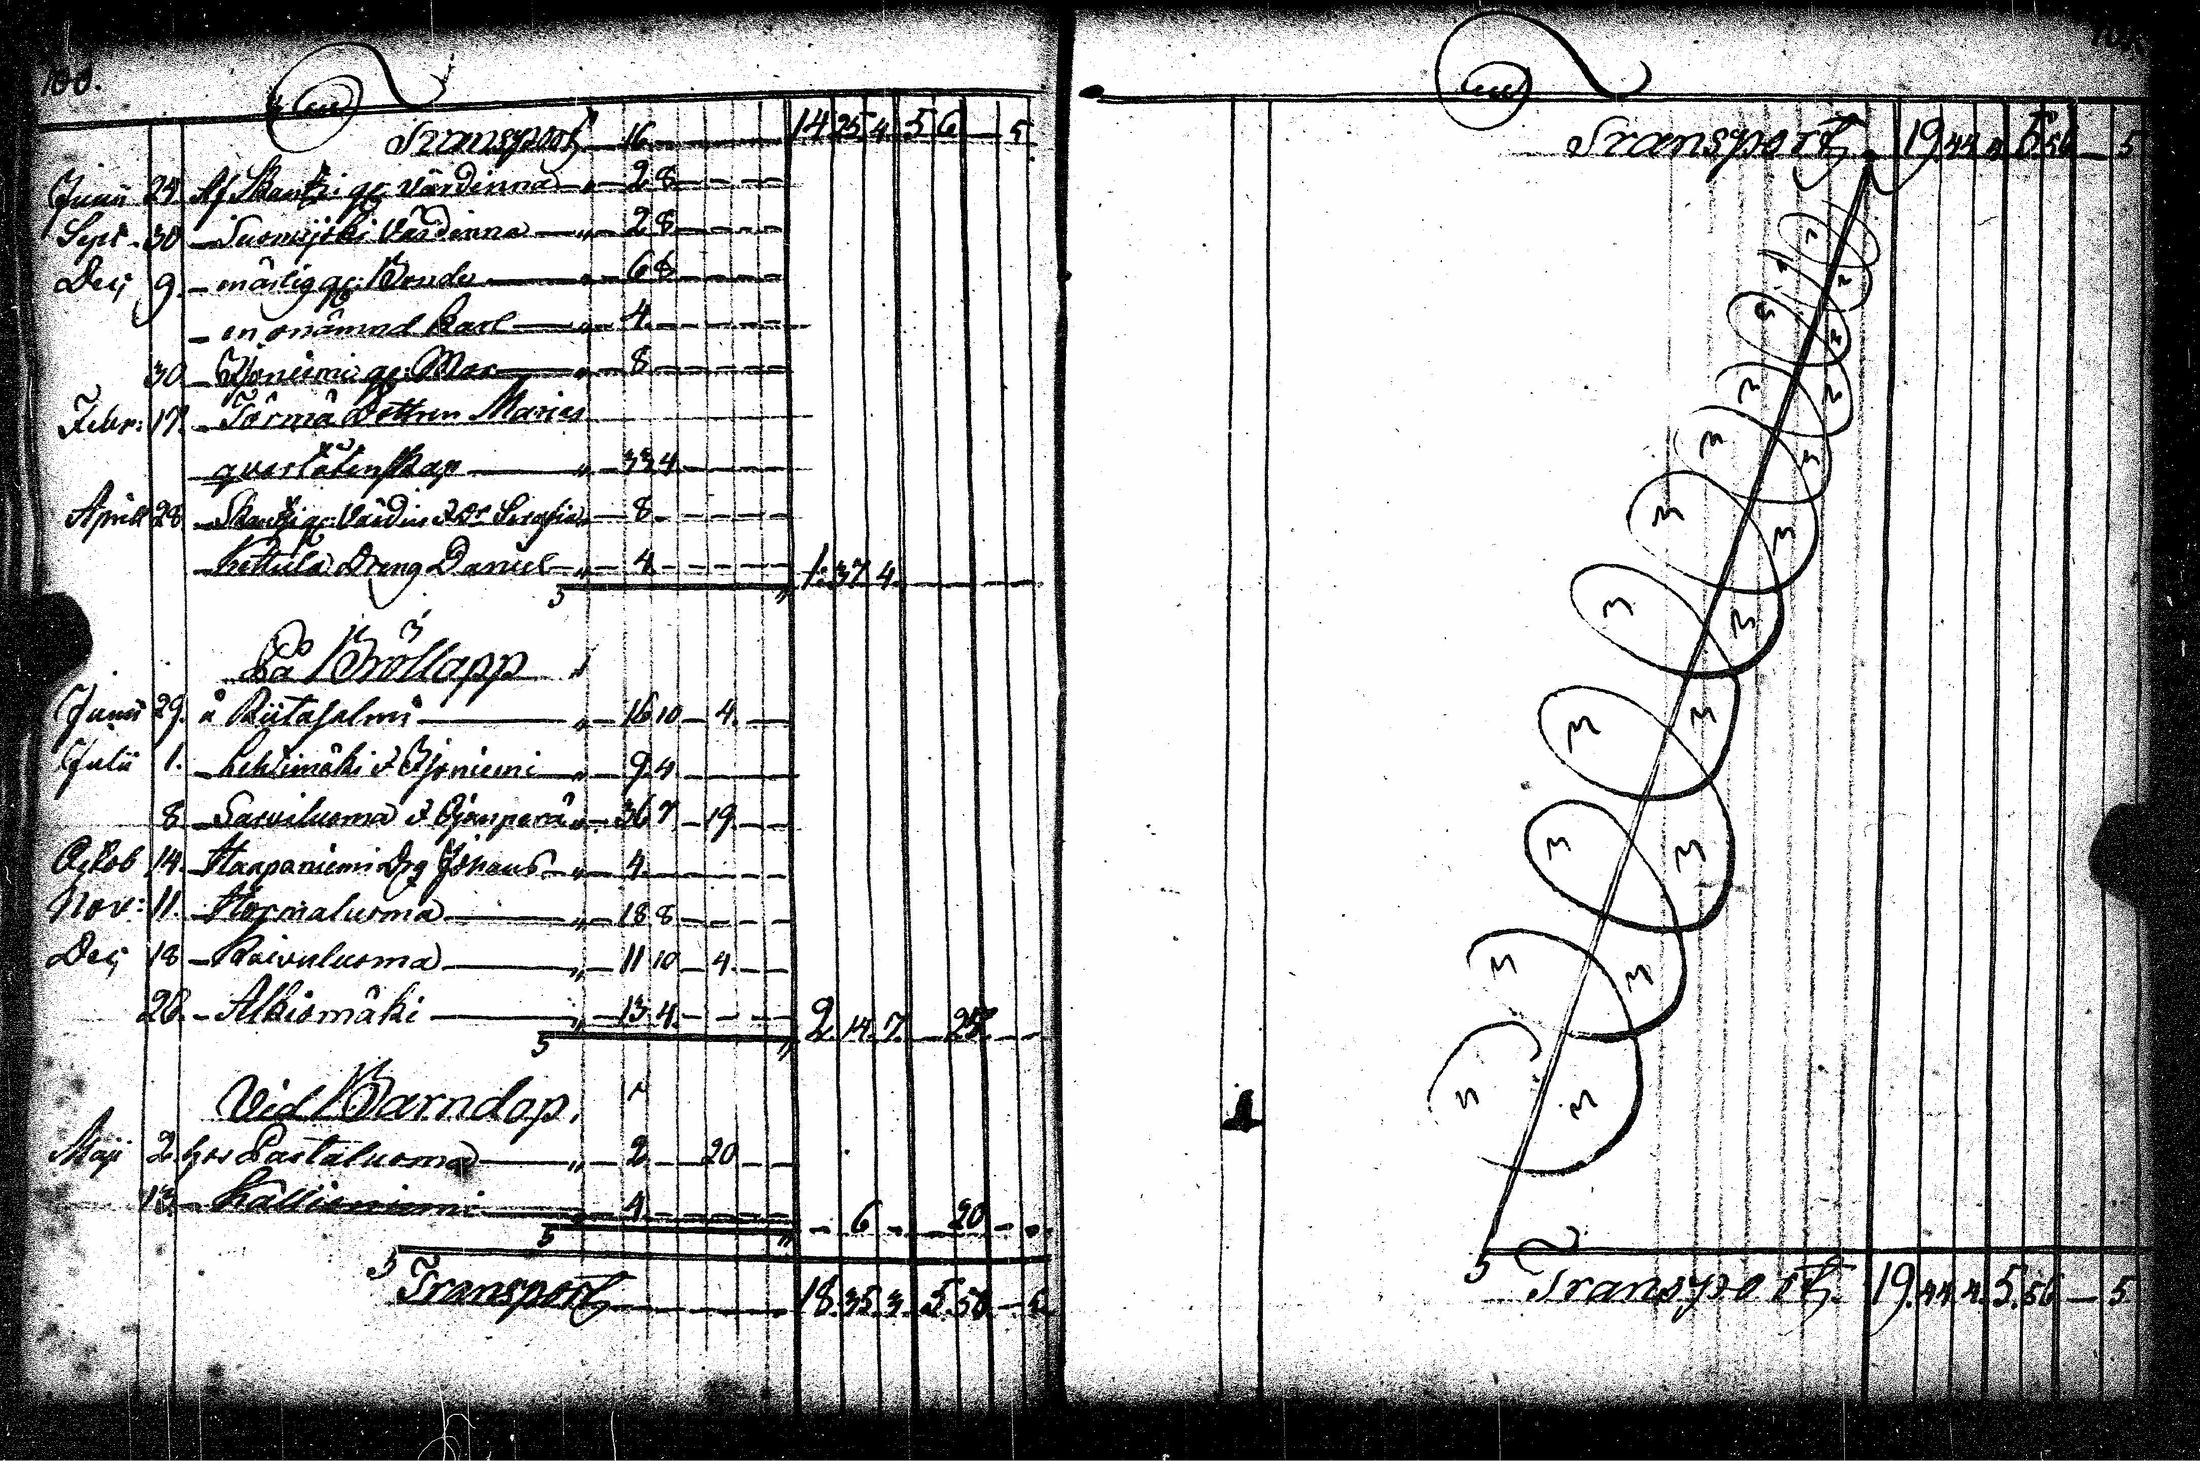 100.
Transport 16. 14 25 4 5 6 — 5
Junii 24. Af Skantzi gl. Värdinna „ 2 8
Sept. 30 Suomijoki Värdinna „ 2 8
Dec; 9. en ärlig gl. Bonde „ 6 8
en onämnd Karl „ 4
30. gl. Mor „ 8
Febr: 17. Törmä Dottren Maries
„ 33 4
Aprill 28 Skantzi gl. Värdin „ 8
Kettula Dreng Daniel „ 4 1. 37 4
På Bröllopp
Junii 29. å Riitasalmi „ 16 10 4.
Julii 1. Lehtimäki „ 9 4
8 Sarviluoma „ 36 7 19
Octob 14. Haapaniemi Drg Johans „ 4
Nov: 11. Hörmaluoma „ 18 8
Dec; 18 Koivuluoma „ 11 10 4.
28. Alkiomäki „ 13 4. 2. 14. 7. 25
Vid Barndop,
Maji 2. hos Rastaluoma „ 2 20
13 Kallioniemi 4 6 20
Transport 18. 35. 3. 5. 50 5
Transport 19. 44 4 5 56 — 5
Transport 19. 44. 4. 5. 56 — 5